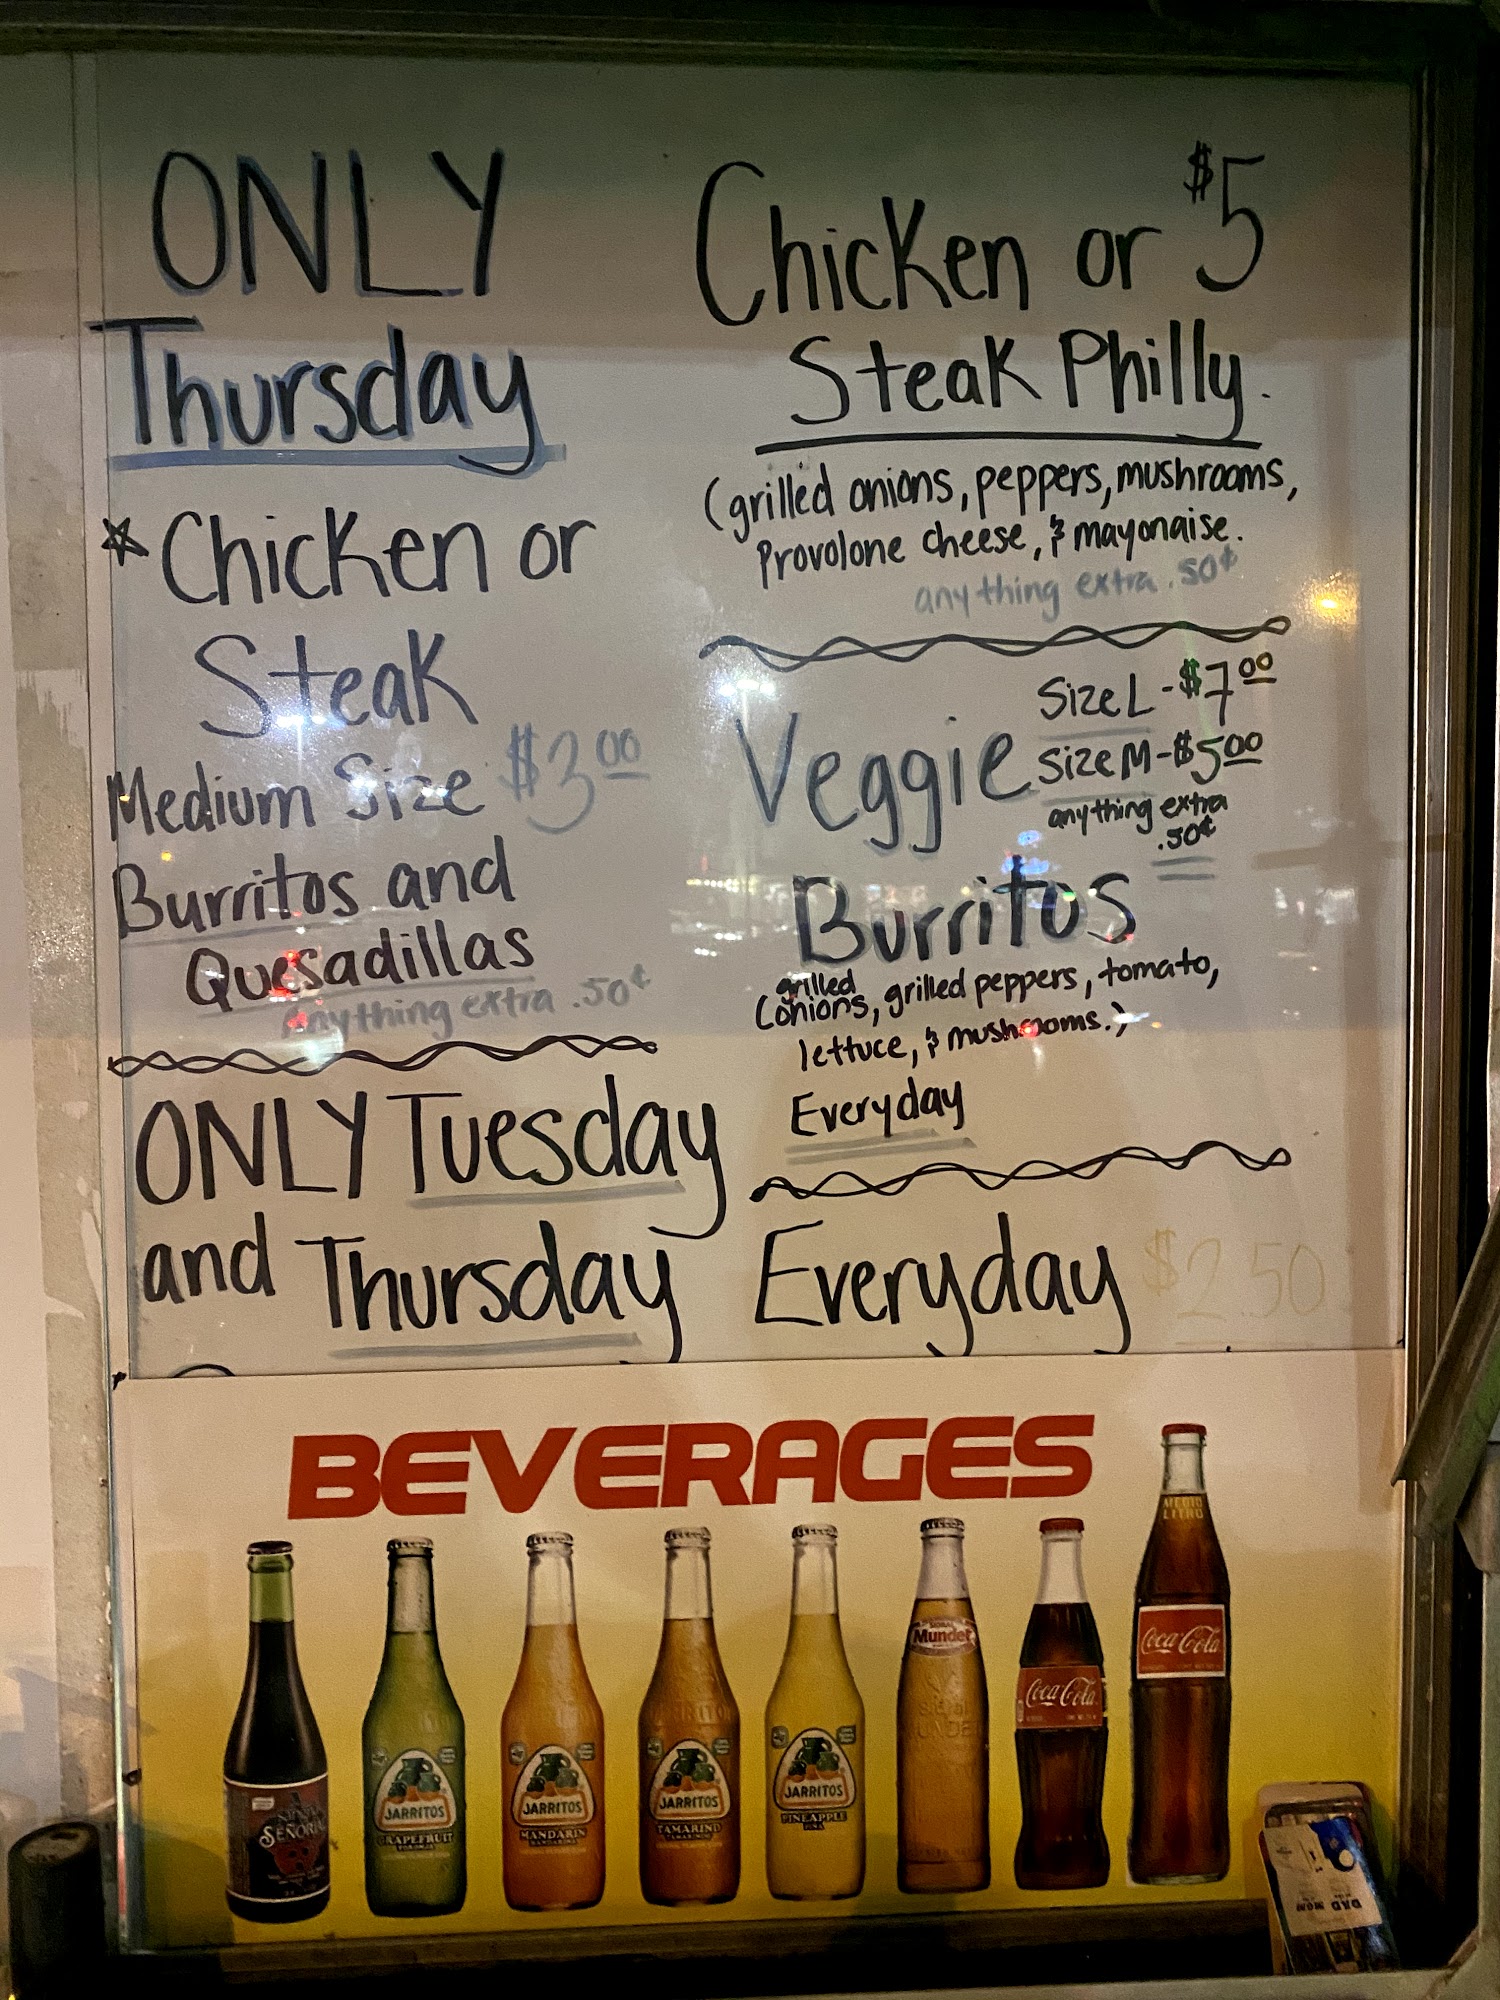 ONLY
Thursday
*Chicken or
Steak
Medium Size $3.00
Burritos and
Quesadillas
anything extra .50¢
ONLY Tuesday
and Thursday
Chicken or $5
Steak Philly.
(grilled onions, peppers, mushrooms,
Provolone cheese, & mayonaise.
anything extra .50¢
Veggie
Size L - $7.00
Size M - $5.00
anything extra
.50¢
Burritos
(grilled onions, grilled peppers, tomato,
lettuce, & mushrooms.)
Everyday
Everyday $2.50
BEVERAGES
SEÑORIAL
JARRITOS
GRAPEFRUIT
JARRITOS
MANDARIN
JARRITOS
TAMARIND
JARRITOS
PINEAPPLE
Mundet
Sidral
MUNDET
Coca-Cola
MEDIO
LITRO
Coca-Cola
DAD MOM